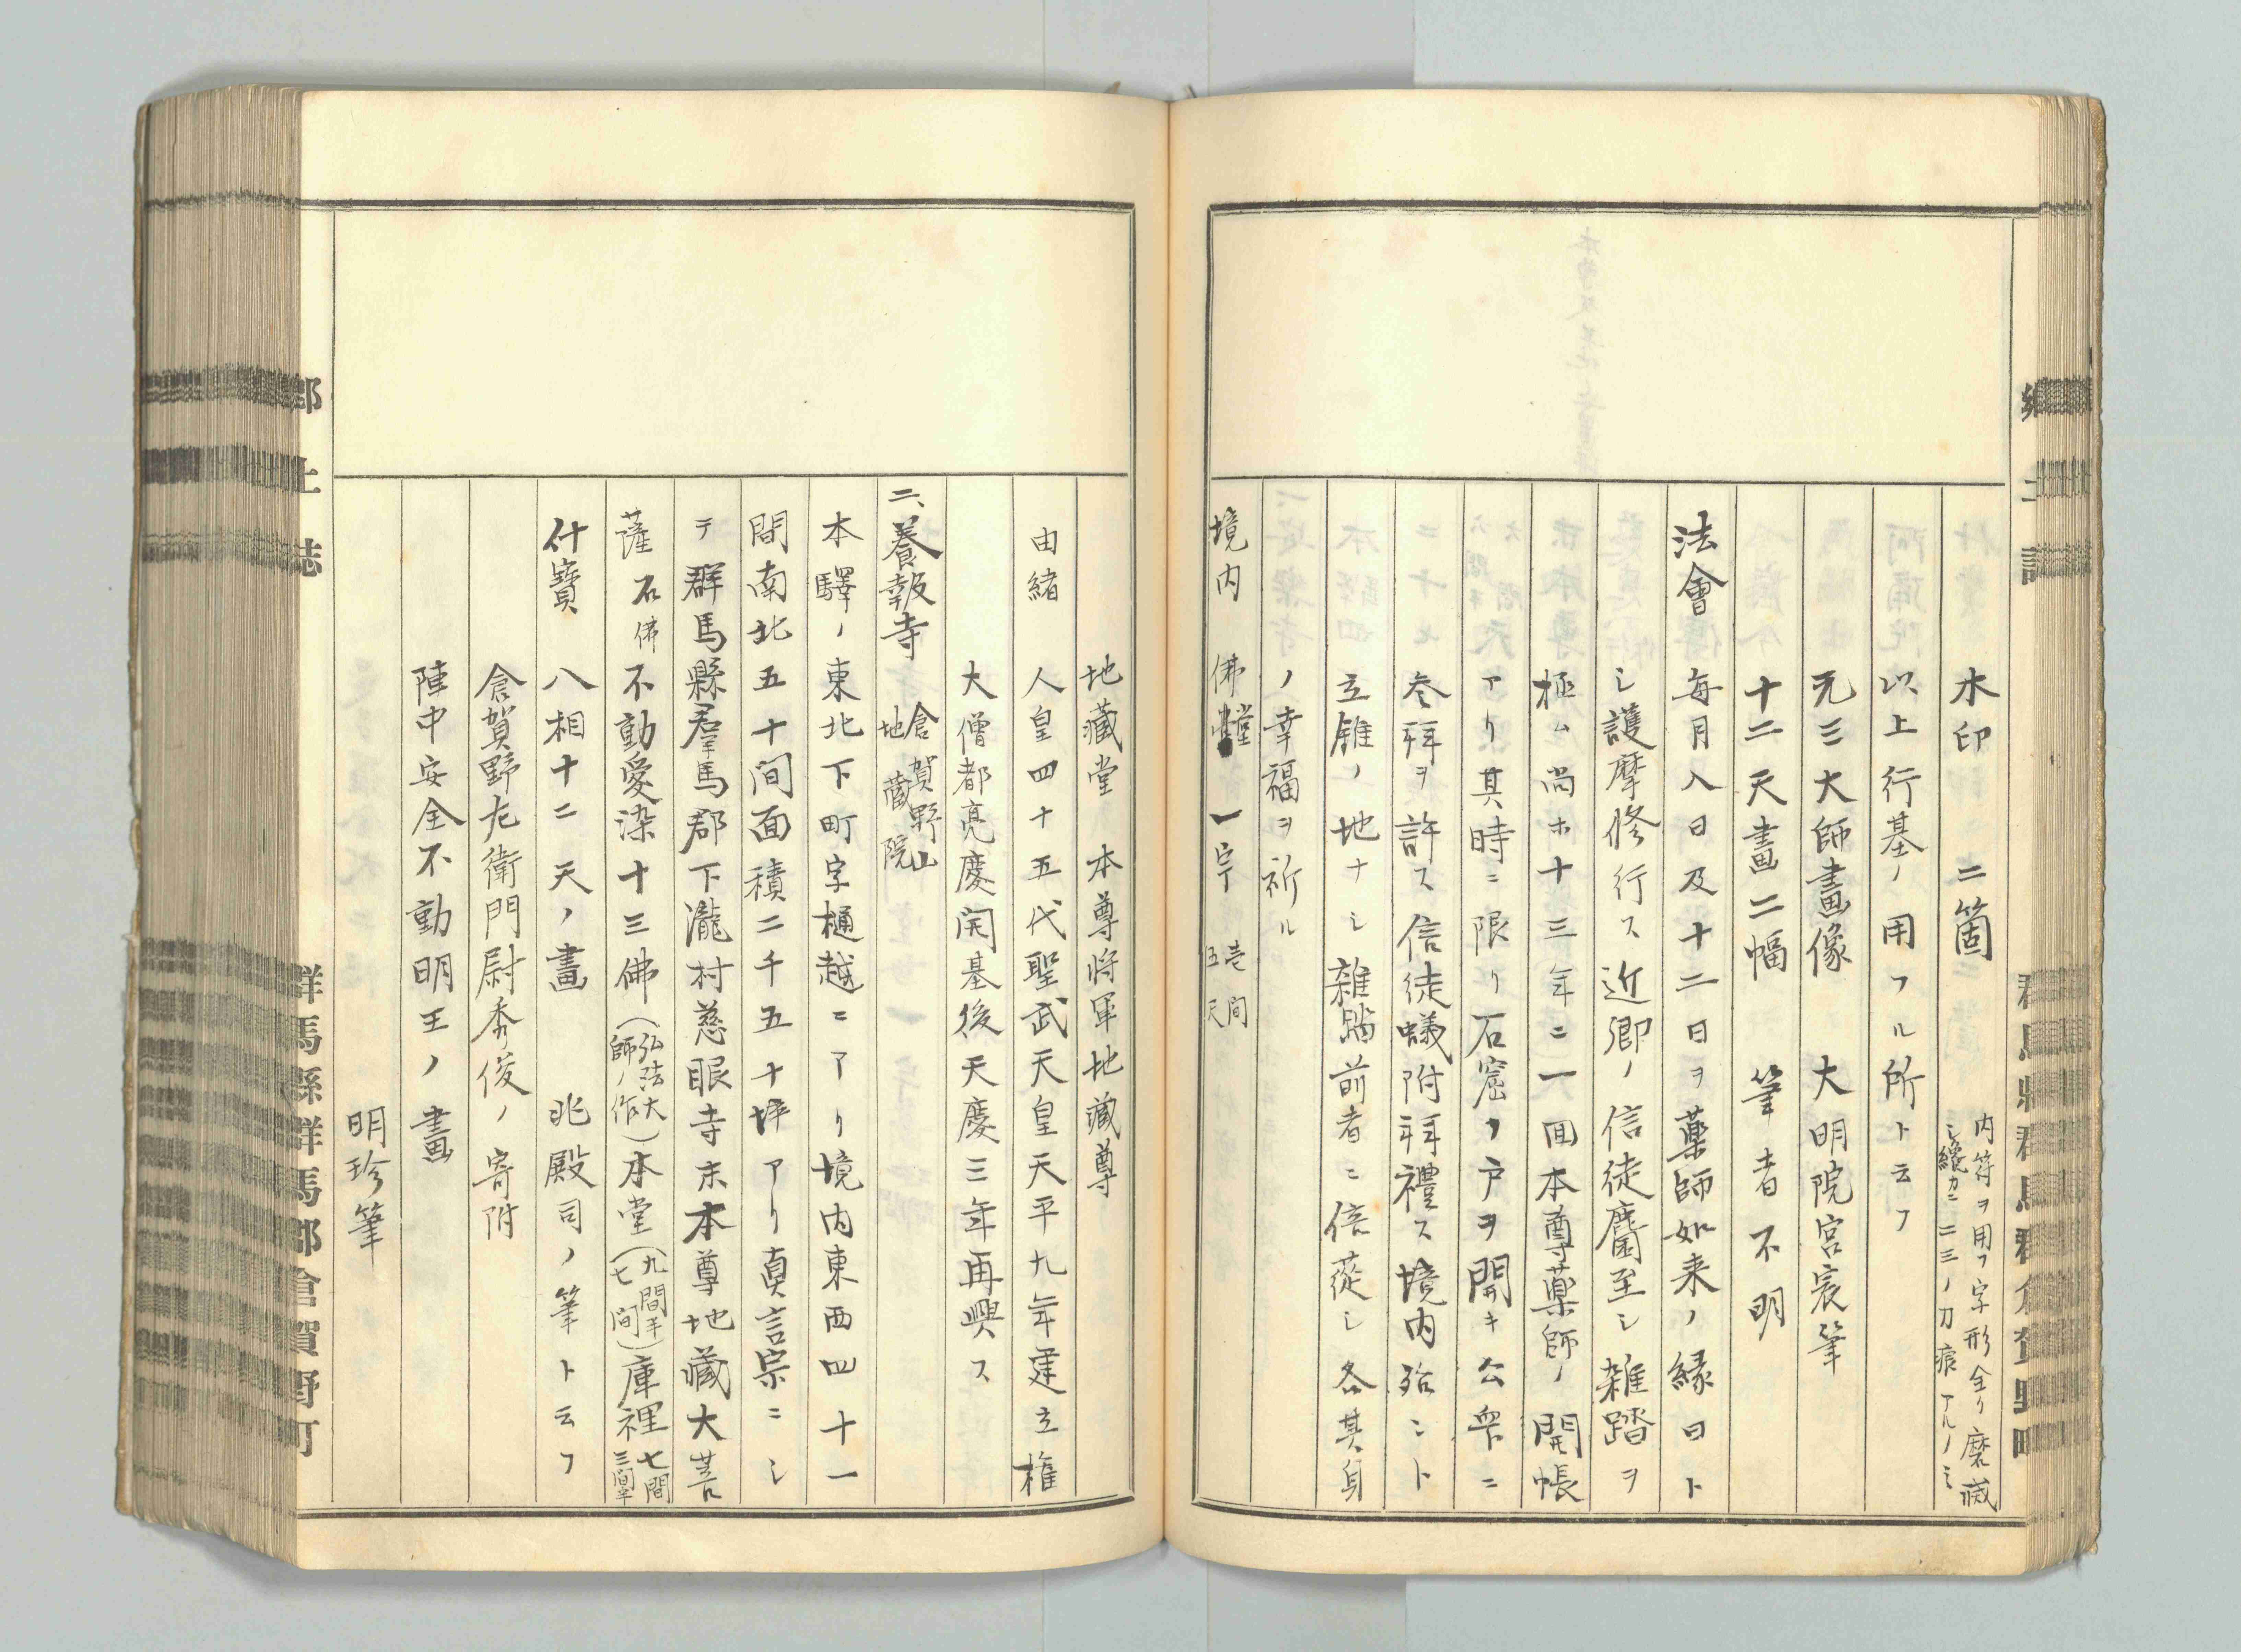 木印　二箇　内符ヲ用フ字形全ク磨滅
シ纔カニ二三ノ刀痕アルノミ
以上行基ノ用フル所ト云フ
元三大師畫像　大明院宮宸筆
十二天畫二幅　筆者不明
法會　毎月八日及十二日ヲ薬師如来ノ縁日ト
シ護摩修行ス近郷ノ信徒麕至シ雑踏ヲ
極ム尚ホ十三年ニ一回本尊薬師ノ開帳
アリ其時ニ限リ石窟ノ戸ヲ開キ公衆ニ
参拜ヲ許ス信徒蟻附拜禮ス境内殆ント
立錐ノ地ナシ雑踏前者ニ倍蓰シ各其身
ノ幸福ヲ祈ル
境内　佛堂　一宇　壱間
五尺
地藏堂　本尊将軍地藏尊
由緒　人皇四十五代聖武天皇天平九年建立権
大僧都亮慶開基後天慶三年再興ス
二、養報寺　倉賀野山
地藏院
本驛ノ東北下町字樋越ニアリ境内東西四十一
間南北五十間面積二千五十坪アリ真言宗ニシ
テ群馬縣羣馬郡下瀧村慈眼寺末本尊地藏大菩
薩石佛不動愛染十三佛（弘法大
師ノ作）本堂（九間半
七間）庫裡七間
三間半
什寶　八相十二天ノ畫　兆殿司ノ筆ト云フ
倉賀野左衛門尉秀俊ノ寄附
陣中安全不動明王ノ畫
明珍筆
郷土誌
群馬縣群馬郡倉賀野町